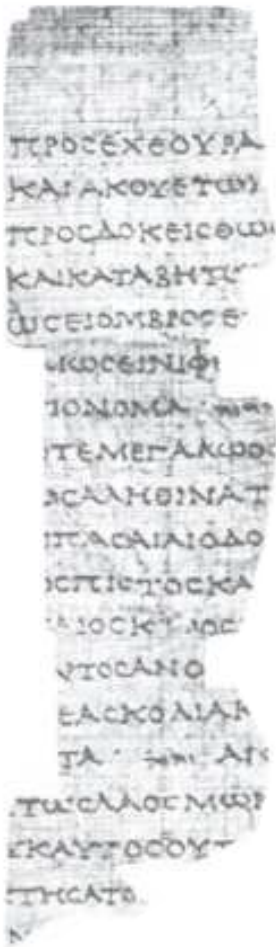 ΠΡΟϹΕΧΕΟΥΡΑ
ΚΑΙΑΚΟΥΕΤΩΓ
ΠΡΟϹΔΟΚΕΙϹΘΩ
ΚΑΙΚΑΤΑΒΗΤΩ
ΩϹΕΙΟΜΒΡΟϹΕ
ΚΑΙΩϹΕΙΝΙΦ
ΤΟΝΟΜΑ יהוה
ΤΕΜΕΓΑΛΩϹ
ΟϹΑΛΗΘΙΝΑΤ
ΙΠΑϹΑΙΑΙΟΔΟ
ΟϹΠΙϹΤΟϹΚΑ
ΑΙΟϹΚΑΙΟϹ
ΤΟϹΑΝΟ
ΕΑϹΚΟΛΙΑΚ
ΤΑ יהוה ΑΝ
ΤΩϹΛΑΟϹΜΩΡ
ΚΑΥΤΟϹΟΥΤ
ΤΗϹΑΤΟ